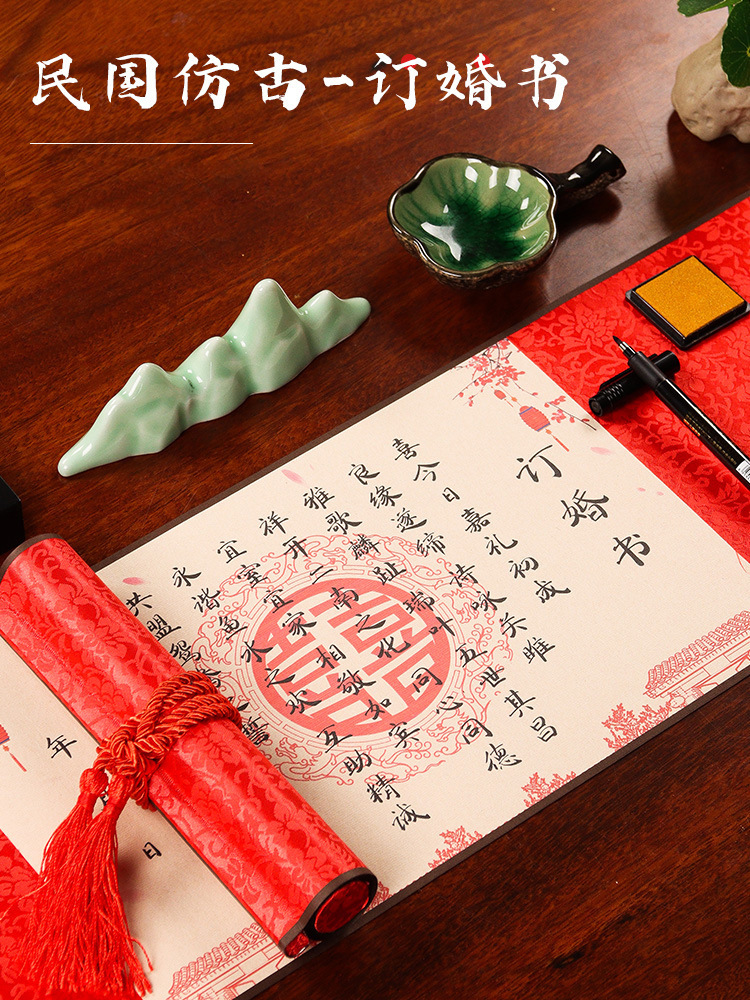 民国仿古-订婚书
订婚书
喜今日嘉礼初成
良缘遂缔诗咏关雎
雅歌麟趾瑞叶五世其昌
祥开二南之化同心同德
宜室宜家相敬如宾
永谐鱼水之欢互助精诚
共盟鸳 誓
年 日